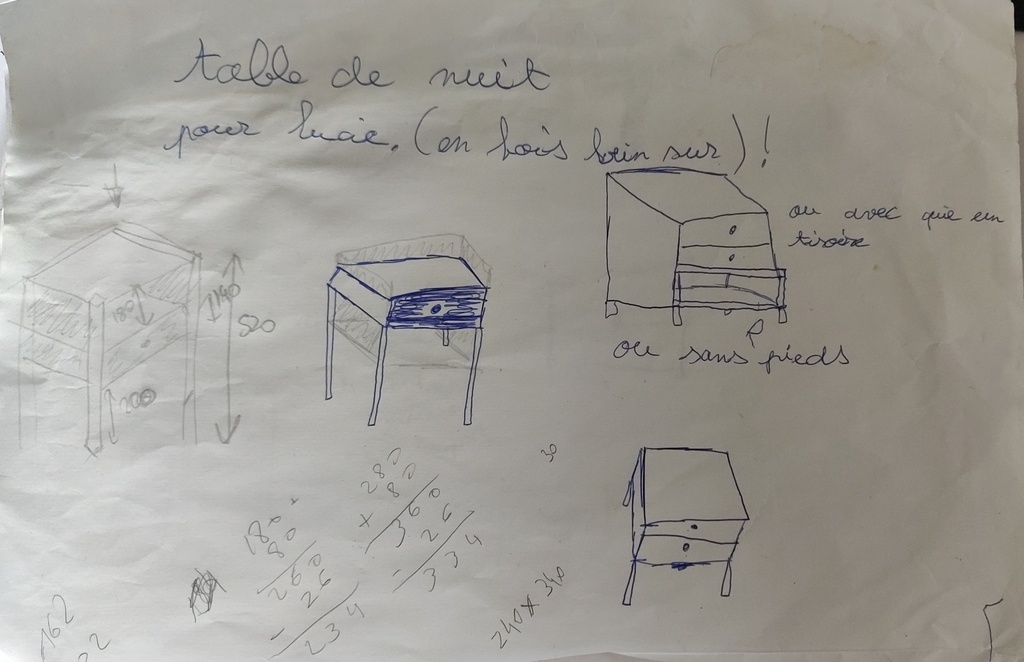 table de nuit
pour lucie. (en bois bein sur)!
ou avec que un
tiroire
ou sans pieds
180
140
520
200
280
x 80
360
26
- 334
180
80
260
26
- 234
30
240 x 340
162